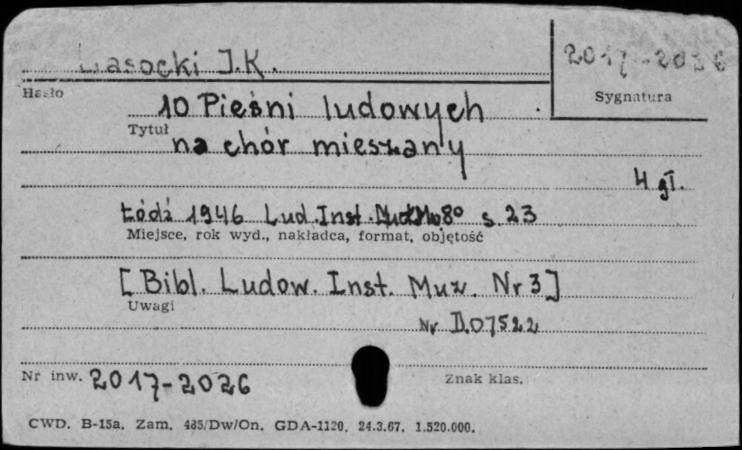 Lasocki J.K.
2017-2026
Hasło
Sygnatura
10 Pieśni ludowych
Tytuł
na chór mieszany
4 gł.
Łódź 1946 Lud. Inst. 8º s. 23
Miejsce, rok wyd., nakładca, format, objętość
[Bibl. Ludow. Inst. Muz. Nr 3]
Uwagi
Nr D.07522
Nr inw. 2017-2026
Znak klas.
CWD. B-15a. Zam. 485/Dw/On. GDA-1120. 24.3.67. 1.520.000.